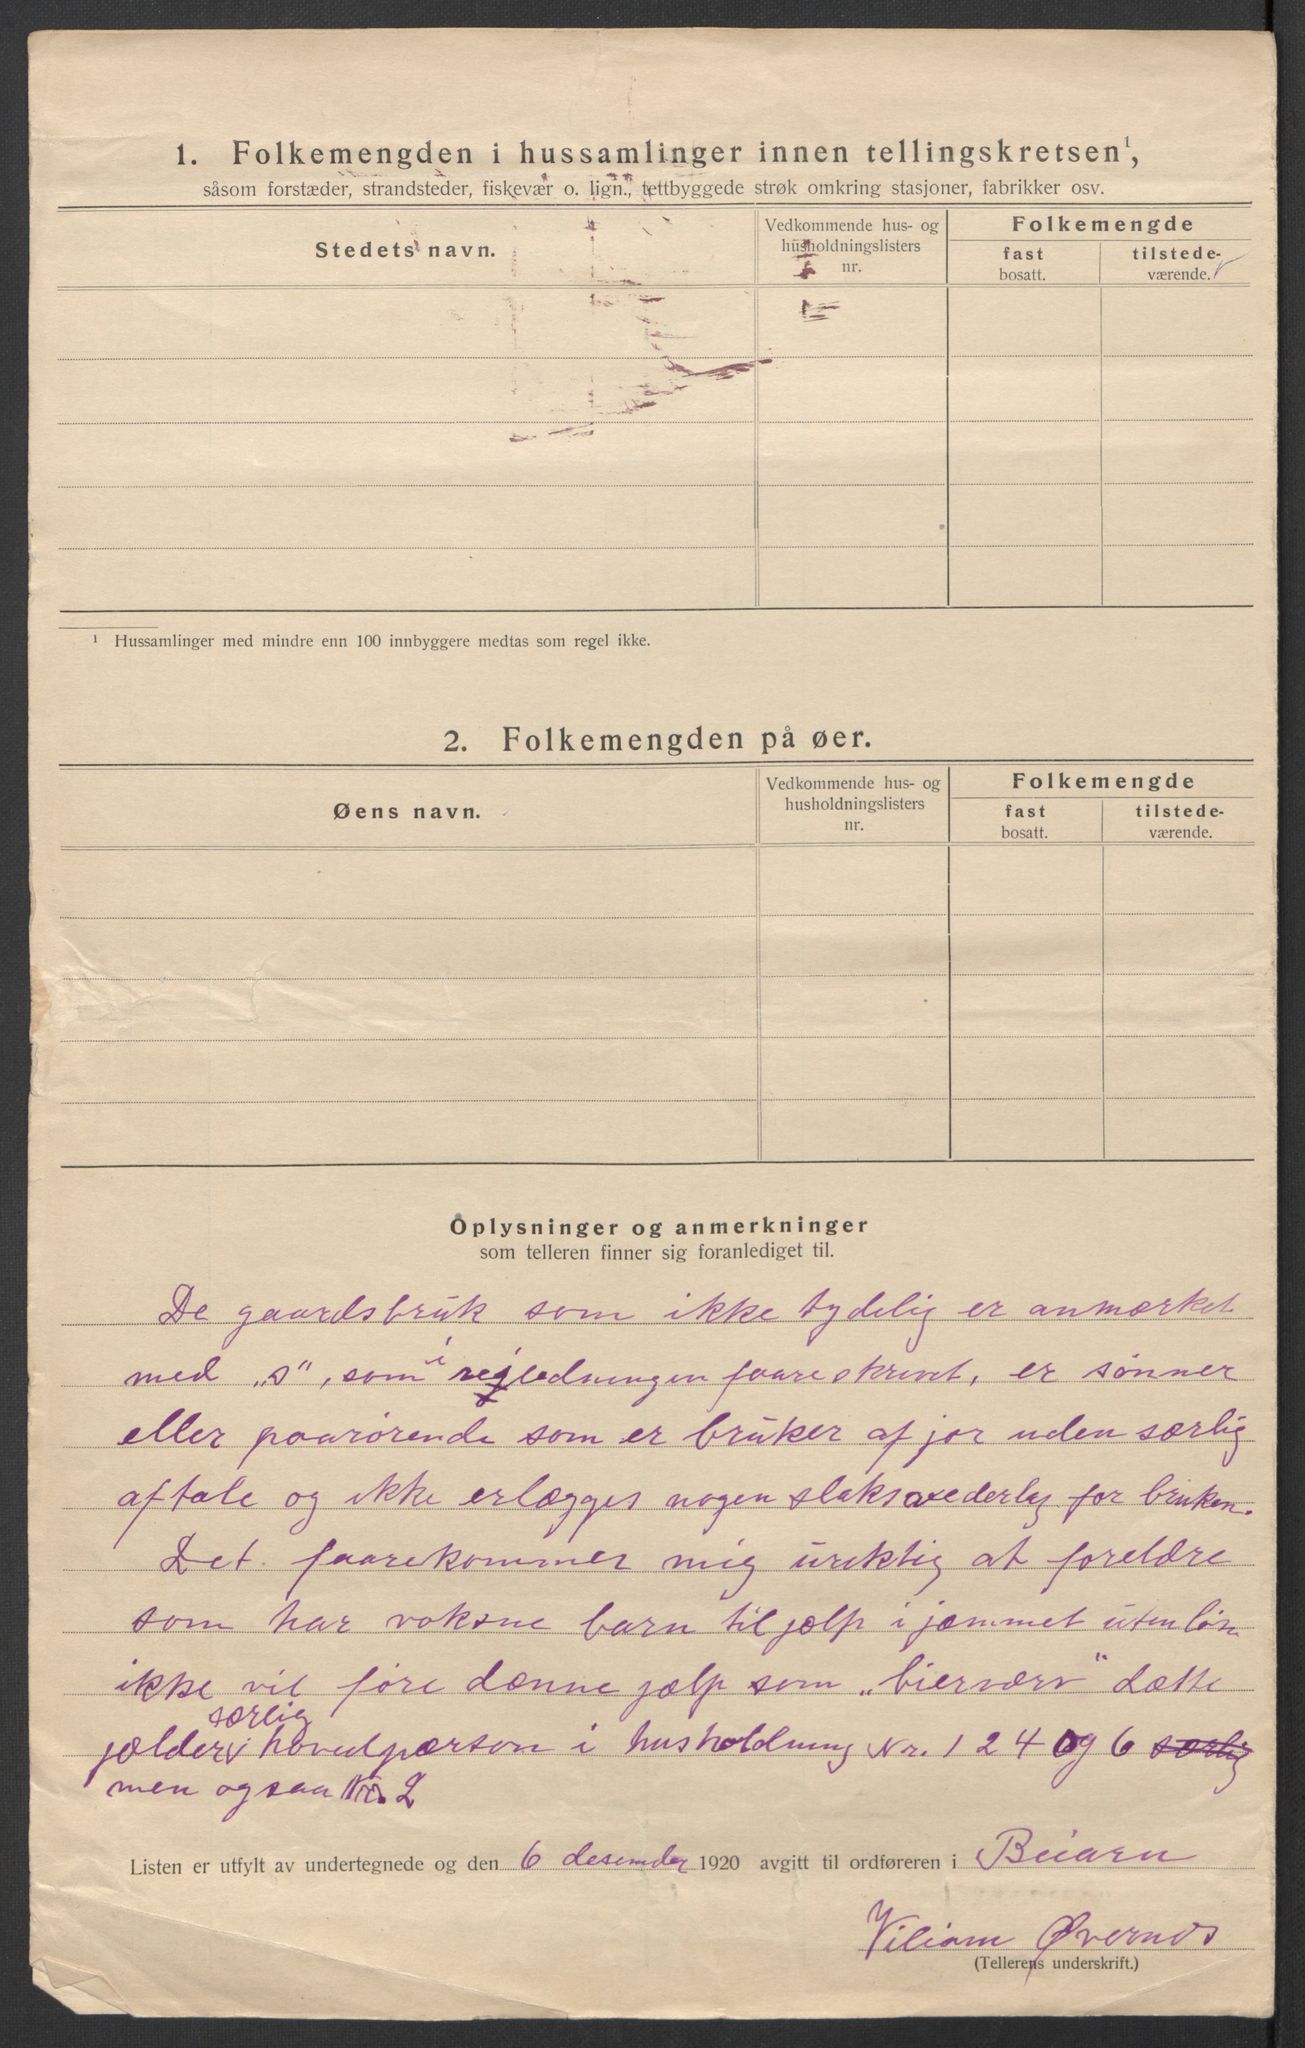 1. Folkemengden i hussamlinger innen tellingskretsen¹,
såsom forstæder, strandsteder, fiskevær o. lign., tettbyggede strøk omkring stasjoner, fabrikker osv.
Stedets navn.
Vedkommende hus- og husholdningslisters nr.
Folkemengde
fast bosatt.
tilstede-værende.
¹ Hussamlinger med mindre enn 100 innbyggere medtas som regel ikke.
2. Folkemengden på øer.
Øens navn.
Vedkommende hus- og husholdningslisters nr.
Folkemengde
fast bosatt.
tilstede-værende.
Oplysninger og anmerkninger
som telleren finner sig foranlediget til.
De gaardsbruk som ikke tydelig er anmærket
med „s“, som i vejledningen faareskrevet, er sønner
eller paarørende som er bruker af jor uden særlig
aftale og ikke erlægges nogen slaksvederlag for bruken.
Det faarekommer mig uriktig at foreldre
som har voksne barn til jælp i jæmmet uten løn
ikke vil føre dænne jælp som „bierværv“ dætte
jælder særlig hovedpærson i husholdning Nr. 1 2 4 og 6 særlig
men ogsaa Nr. 2
Listen er utfylt av undertegnede og den 6 desember 1920 avgitt til ordføreren i Beiarn
Viliam Øvernes
(Tellerens underskrift.)